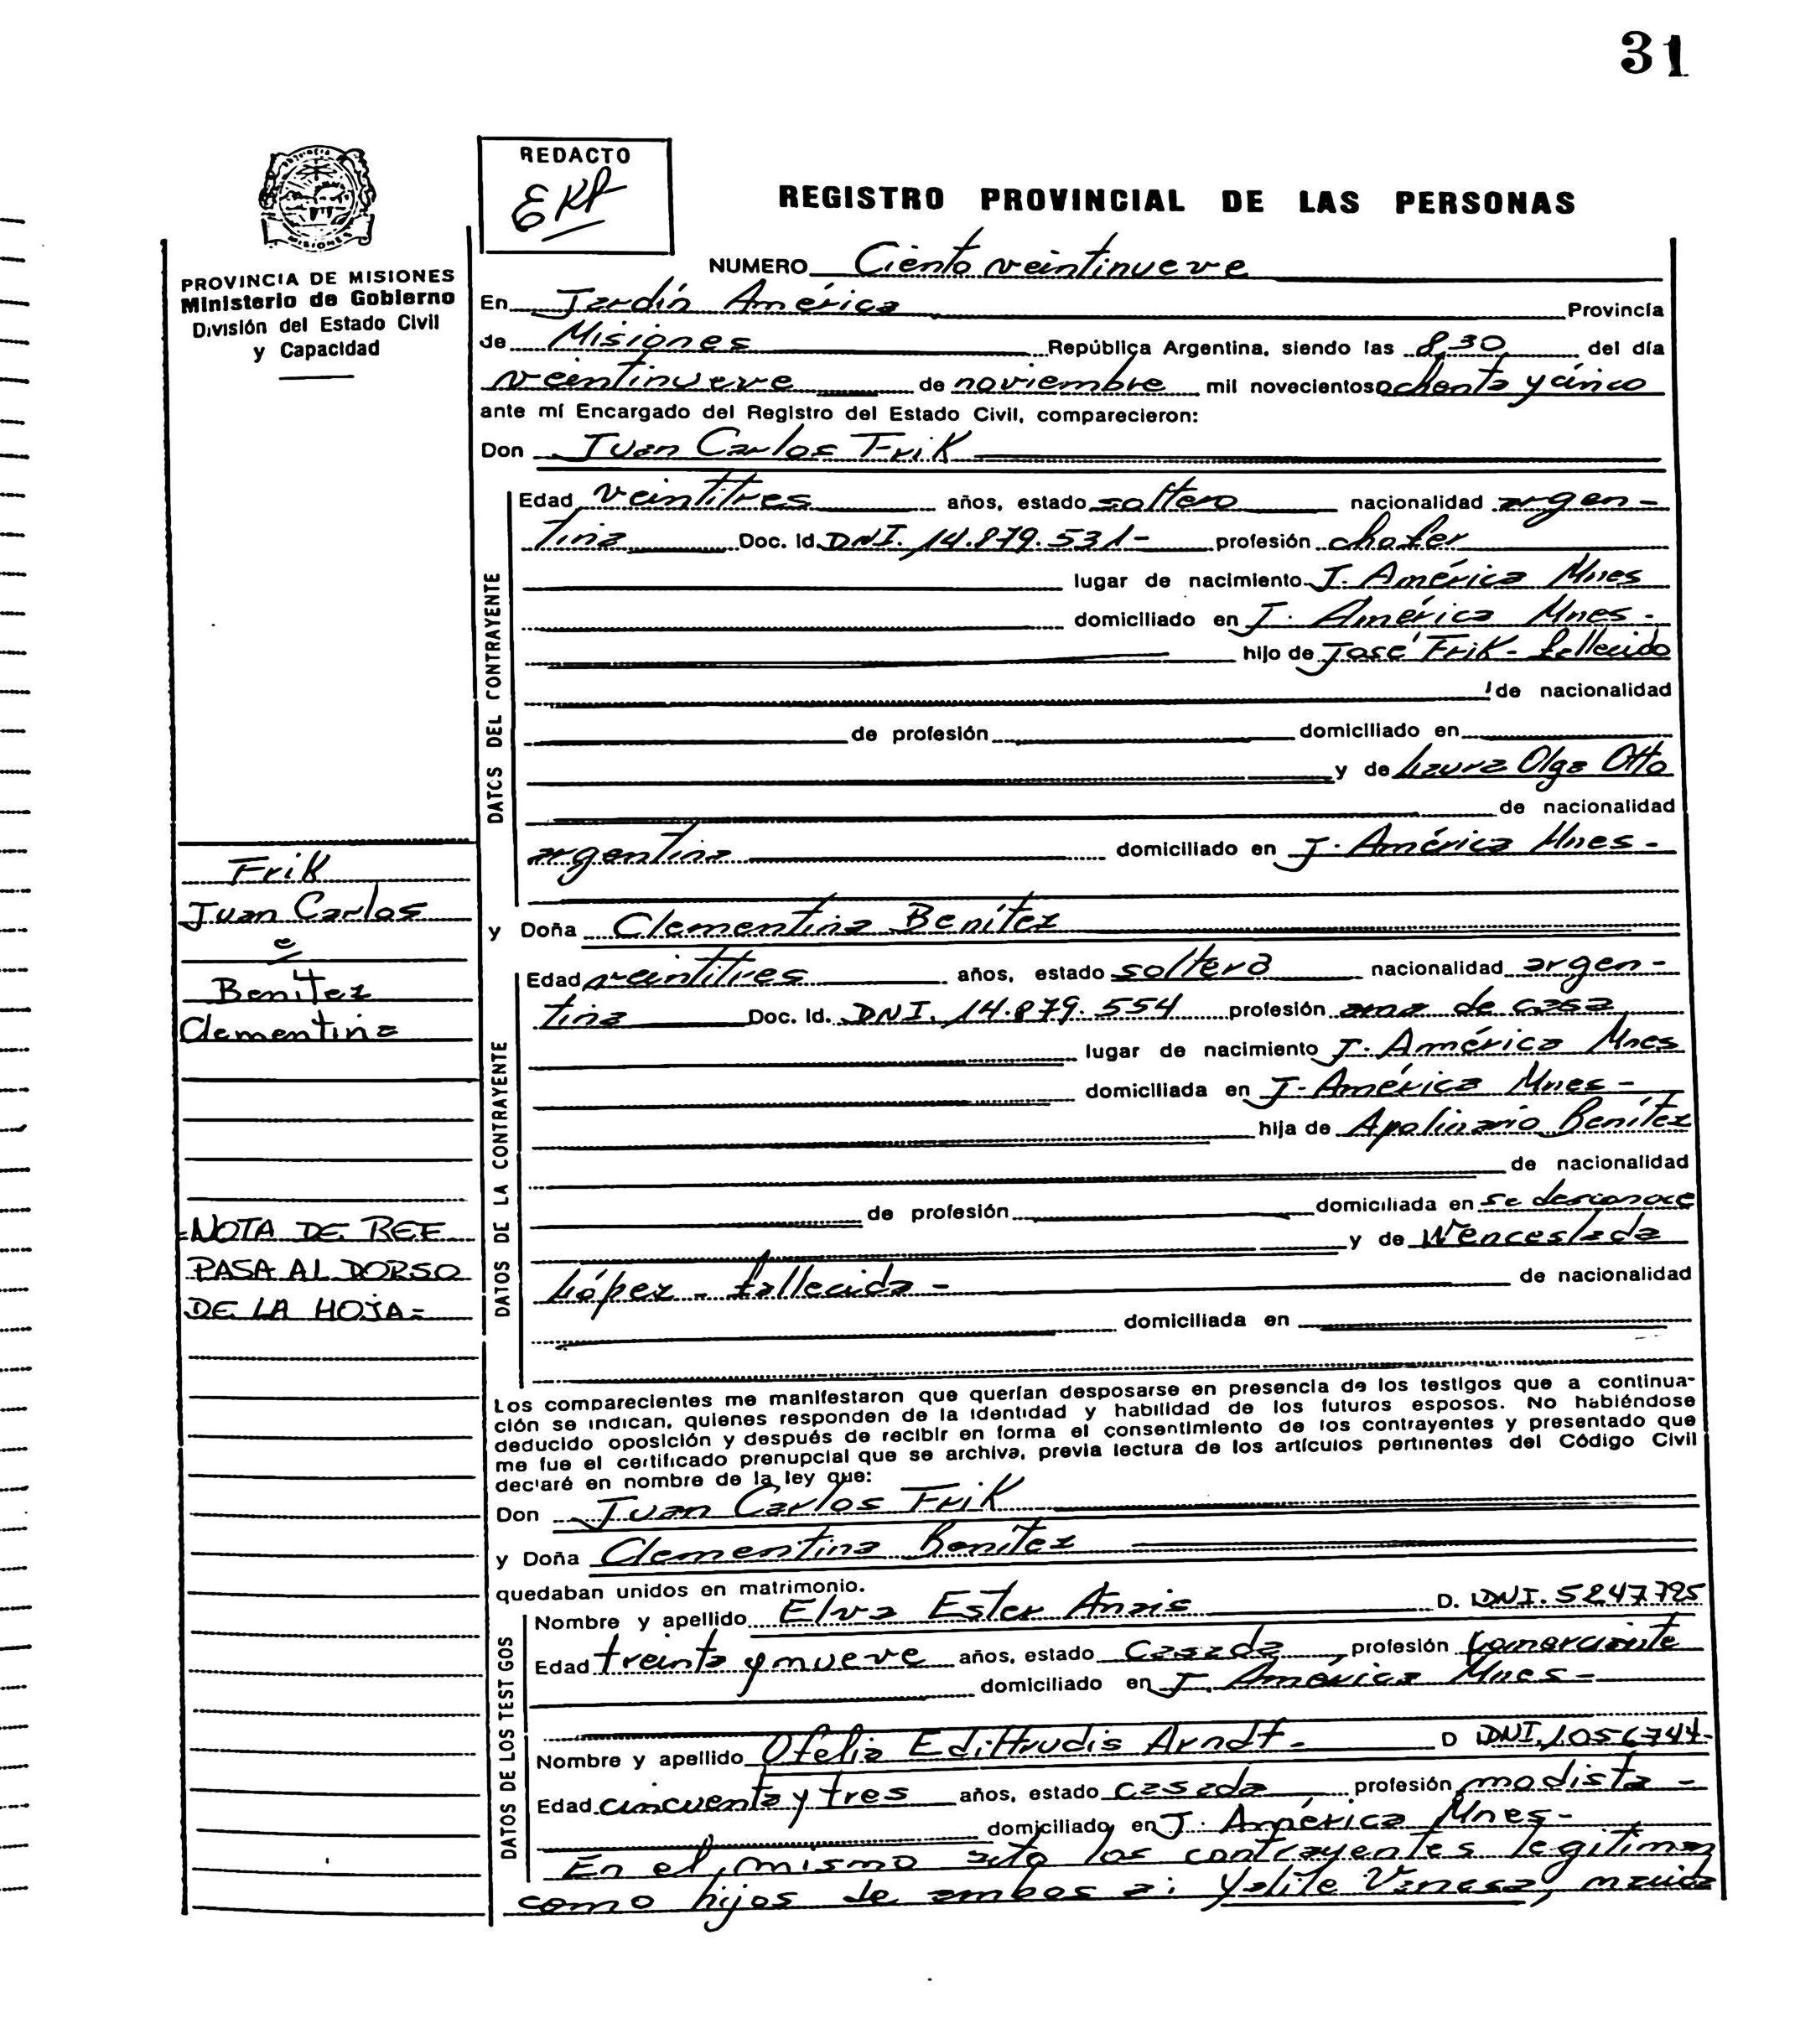 31
REDACTO
REGISTRO PROVINCIAL DE LAS PERSONAS
MISIONES
PROVINCIA DE MISIONES
Ministerio de Gobierno
División del Estado Civil
y Capacidad
NUMERO Ciento veintinueve
En Jardín América Provincia
de Misiones República Argentina, siendo las 8,30 del día
veintinueve de noviembre mil novecientos ochenta y cinco
ante mí Encargado del Registro del Estado Civil, comparecieron:
Don Juan Carlos Frik
DATOS DEL CONTRAYENTE
Edad veintitres años, estado soltero nacionalidad argen-
tina Doc. Id. DNI. 14.879.531- profesión chofer
lugar de nacimiento J. América Mnes
domiciliado en J. América Mnes-
hijo de José Frik- fallecido
de nacionalidad
de profesión domiciliado en
y de Laura Olga Otto
de nacionalidad
argentina domiciliado en J. América Mnes-
Frik
Juan Carlos
e
Benítez
Clementina
y Doña Clementina Benítez
DATOS DE LA CONTRAYENTE
Edad veintitres años, estado soltera nacionalidad argen-
tina Doc. Id. DNI. 14.879.554 profesión ama de casa
lugar de nacimiento J. América Mnes
domiciliada en J. América Mnes-
hija de Apolinario Benítez
de nacionalidad
de profesión domiciliada en se desconoce
y de Wenceslada
López - fallecida - de nacionalidad
domiciliada en
=NOTA DE REF
PASA AL DORSO
DE LA HOJA=
Los comparecientes me manifestaron que querían desposarse en presencia de los testigos que a continua-
ción se indican, quienes responden de la identidad y habilidad de los futuros esposos. No habiéndose
deducido oposición y después de recibir en forma el consentimiento de los contrayentes y presentado que
me fue el certificado prenupcial que se archiva, previa lectura de los artículos pertinentes del Código Civil
declaré en nombre de la ley que:
Don Juan Carlos Frik
y Doña Clementina Benítez
quedaban unidos en matrimonio.
DATOS DE LOS TESTIGOS
Nombre y apellido Elva Ester Anais D. DNI. 5247795
Edad treinta y nueve años, estado casada profesión comerciante
domiciliado en J. América Mnes-
Nombre y apellido Ofelia Edittrudis Arndt- D DNI. 1056744-
Edad cincuenta y tres años, estado casada profesión modista -
domiciliado en J. América Mnes-
En el mismo acto los contrayentes legitiman
como hijos de ambos a: Yolile Vanesa, nacida